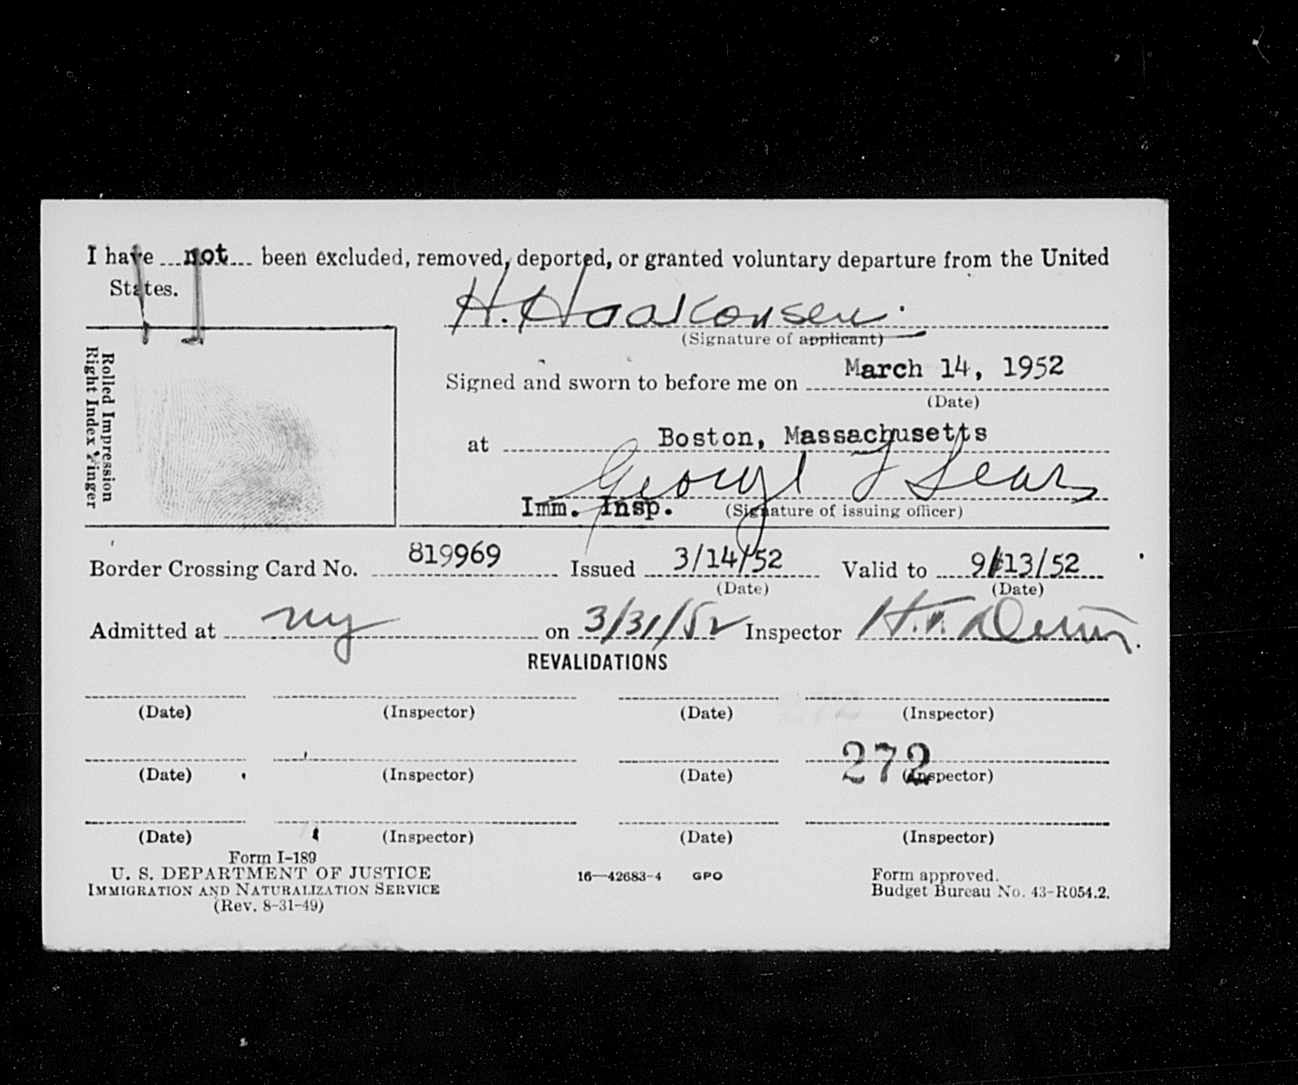 I have not been excluded, removed, deported, or granted voluntary departure from the United
States.
H. Haakonsen
(Signature of applicant)
Rolled Impression
Right Index Finger
Signed and sworn to before me on March 14, 1952
(Date)
at Boston, Massachusetts
George J Sears
Imm. Insp. (Signature of issuing officer)
Border Crossing Card No. 819969 Issued 3/14/52 Valid to 9/13/52
(Date) (Date)
Admitted at NY on 3/31/52 Inspector H.
REVALIDATIONS
(Date) (Inspector) (Date) (Inspector)
272
(Date) (Inspector) (Date) (Inspector)
(Date) (Inspector) (Date) (Inspector)
Form I-189
U. S. DEPARTMENT OF JUSTICE
IMMIGRATION AND NATURALIZATION SERVICE
(Rev. 8-31-49)
16—42683-4 GPO
Form approved.
Budget Bureau No. 43-R054.2.